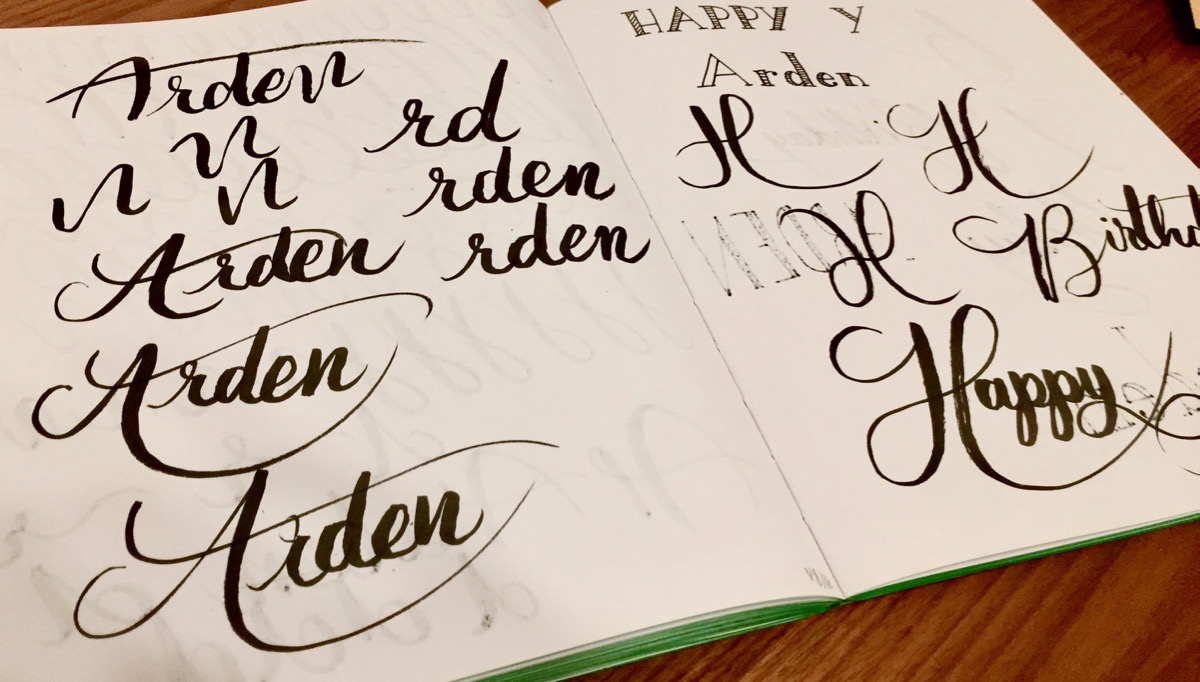 Arden
n rd
n n rden
Arden rden
Arden
Arden
HAPPY Y
Arden
H H
H Birthd
Happy